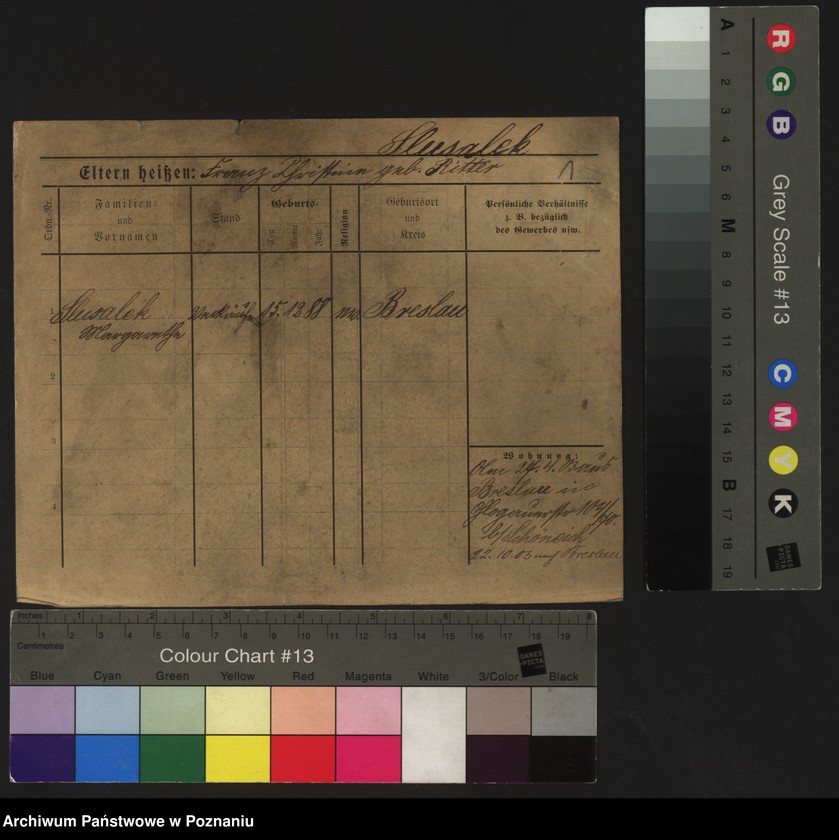 Slusalek
Eltern heißen: Franz Christine geb. Ritter
Ordn.-Nr.
Familien-
und
Vornamen
Stand
Geburts-
Tag
Monat
Jahr
Religion
Geburtsort
und
Kreis
Persönliche Verhältnisse
z. B. bezüglich
des Gewerbes usw.
1
Slusalek
Margarethe
15. 12 88
Breslau
2
3
4
Wohnung:
24. 4. 03 aus
Breslau in
Glogauerstr 104/
b/Schöneich
22.10.03 auf Breslau
A
1
2
3
4
5
6
M
8
9
10
11
12
13
14
15
B
17
18
19
R
G
B
Grey Scale #13
C
M
Y
K
DANES
PICTA
Inches
1
2
3
4
5
6
7
8
Centimetres
1
2
3
4
5
6
7
8
9
10
11
12
13
14
15
16
17
18
19
Colour Chart #13
DANES
PICTA
Blue
Cyan
Green
Yellow
Red
Magenta
White
3/Color
Black
Archiwum Państwowe w Poznaniu